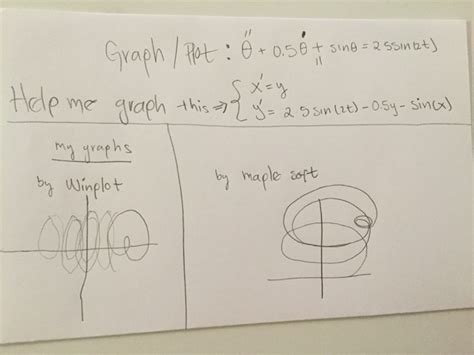 Graph / Plot : θ̈ + 0.5θ̇ + sinθ = 2 5sin(2t)
Help me graph this ⇒ { x' = y
y' = 2 5 sin(2t) - 0.5y - sin(x)
My graphs
by Winplot
by maple soft